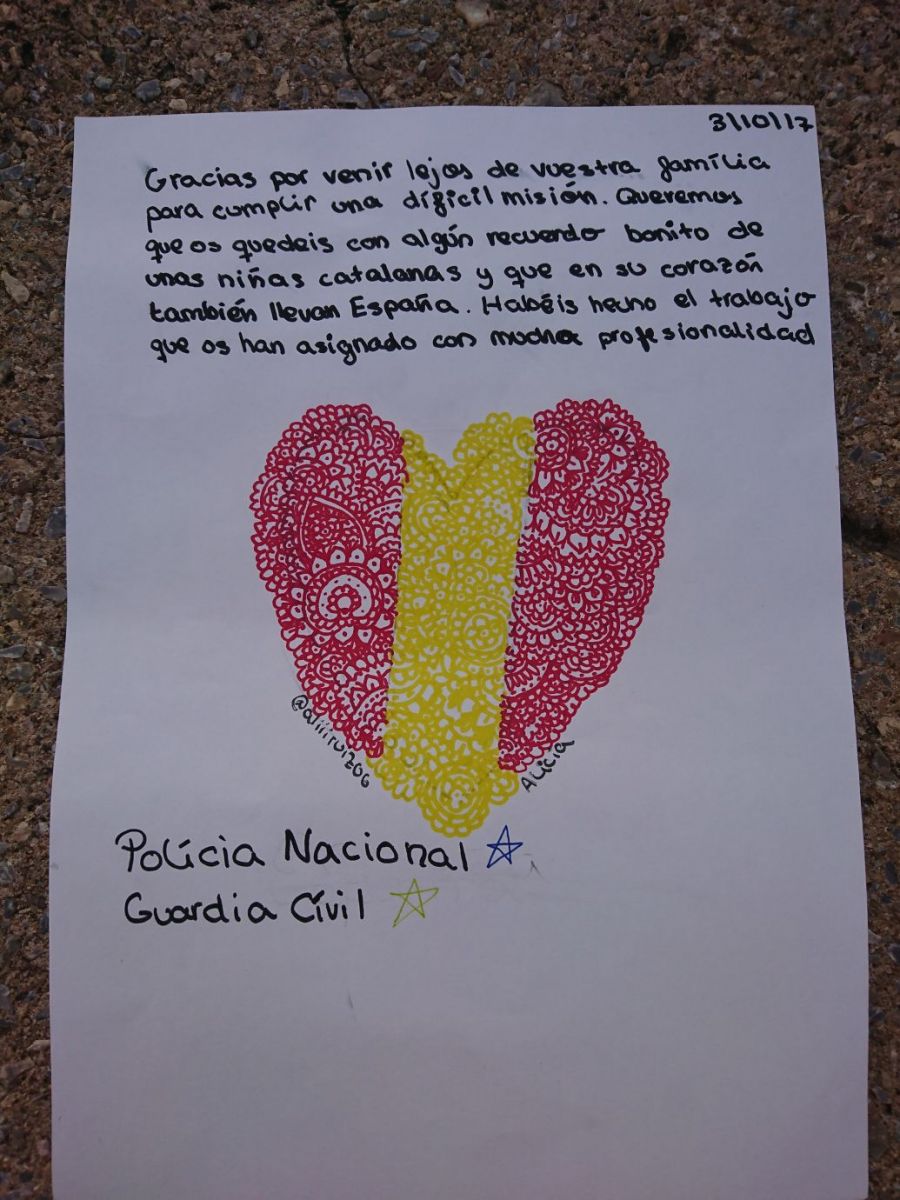 3/10/17
Gracias por venir lejos de vuestra família
para cumplir una dificil misión. Queremos
que os quedeis con algún recuerdo bonito de
unas niñas catalanas y que en su corazón
también llevan España. Habéis hecho el trabajo
que os han asignado con mucha profesionalidad
@aliiiruiz06
Alicia
Polícia Nacional
Guardia Cívil